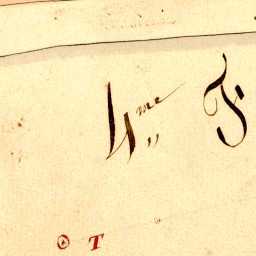 4me F
T